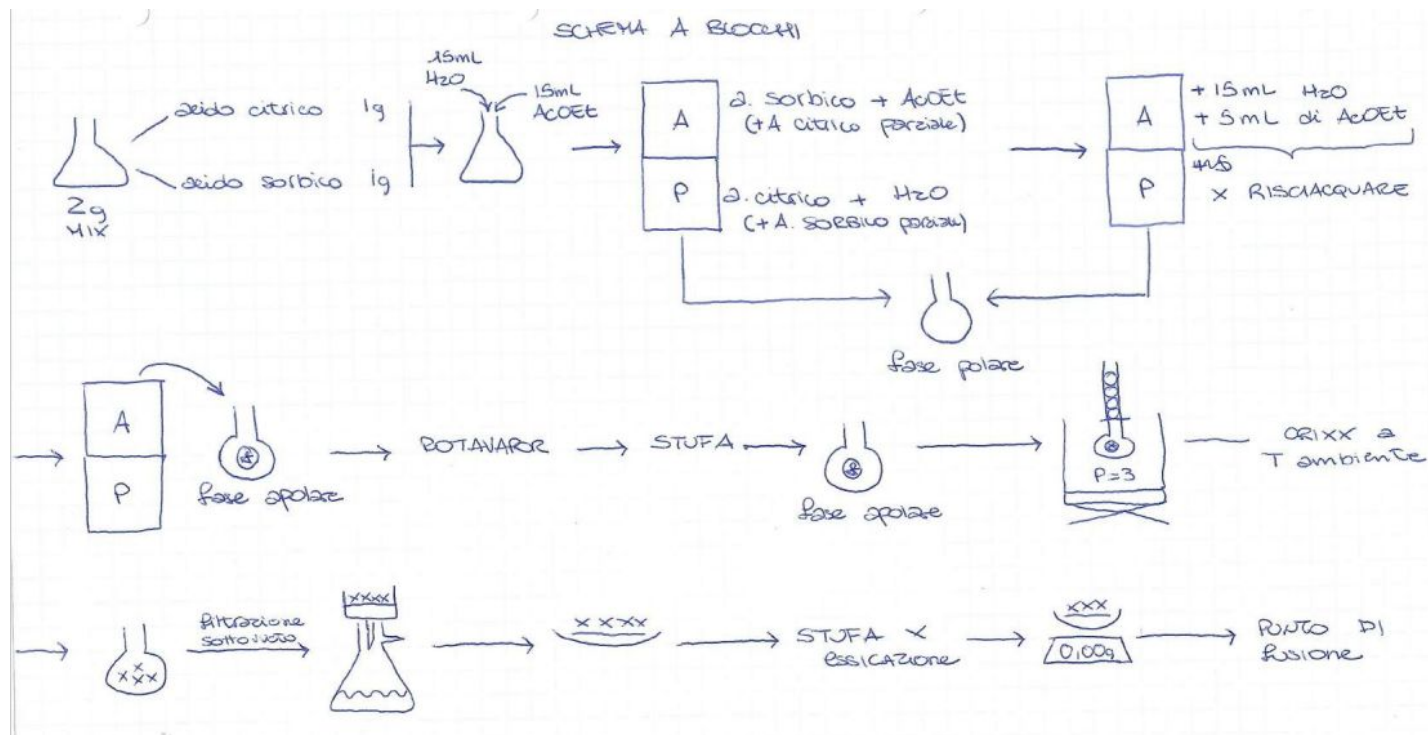 SCHEMA A BLOCCHI
acido citrico 1g
acido sorbico 1g
2g
MIX
15mL
H2O
15mL
AcOEt
A
P
a. sorbico + AcOEt
(+ A citrico parziale)
a. citrico + H2O
(+ A. SORBICO parziale)
A
P
+ 15mL H2O
+ 5mL di AcOEt
x RISCIACQUARE
fase polare
A
P
fase apolare
ROTAVAPOR
STUFA
fase apolare
P=3
CRIXX a
T ambiente
filtrazione
sottovuoto
xxxx
xxx
xxxx
STUFA x
essicazione
xxx
0,00g
PUNTO DI
fusione